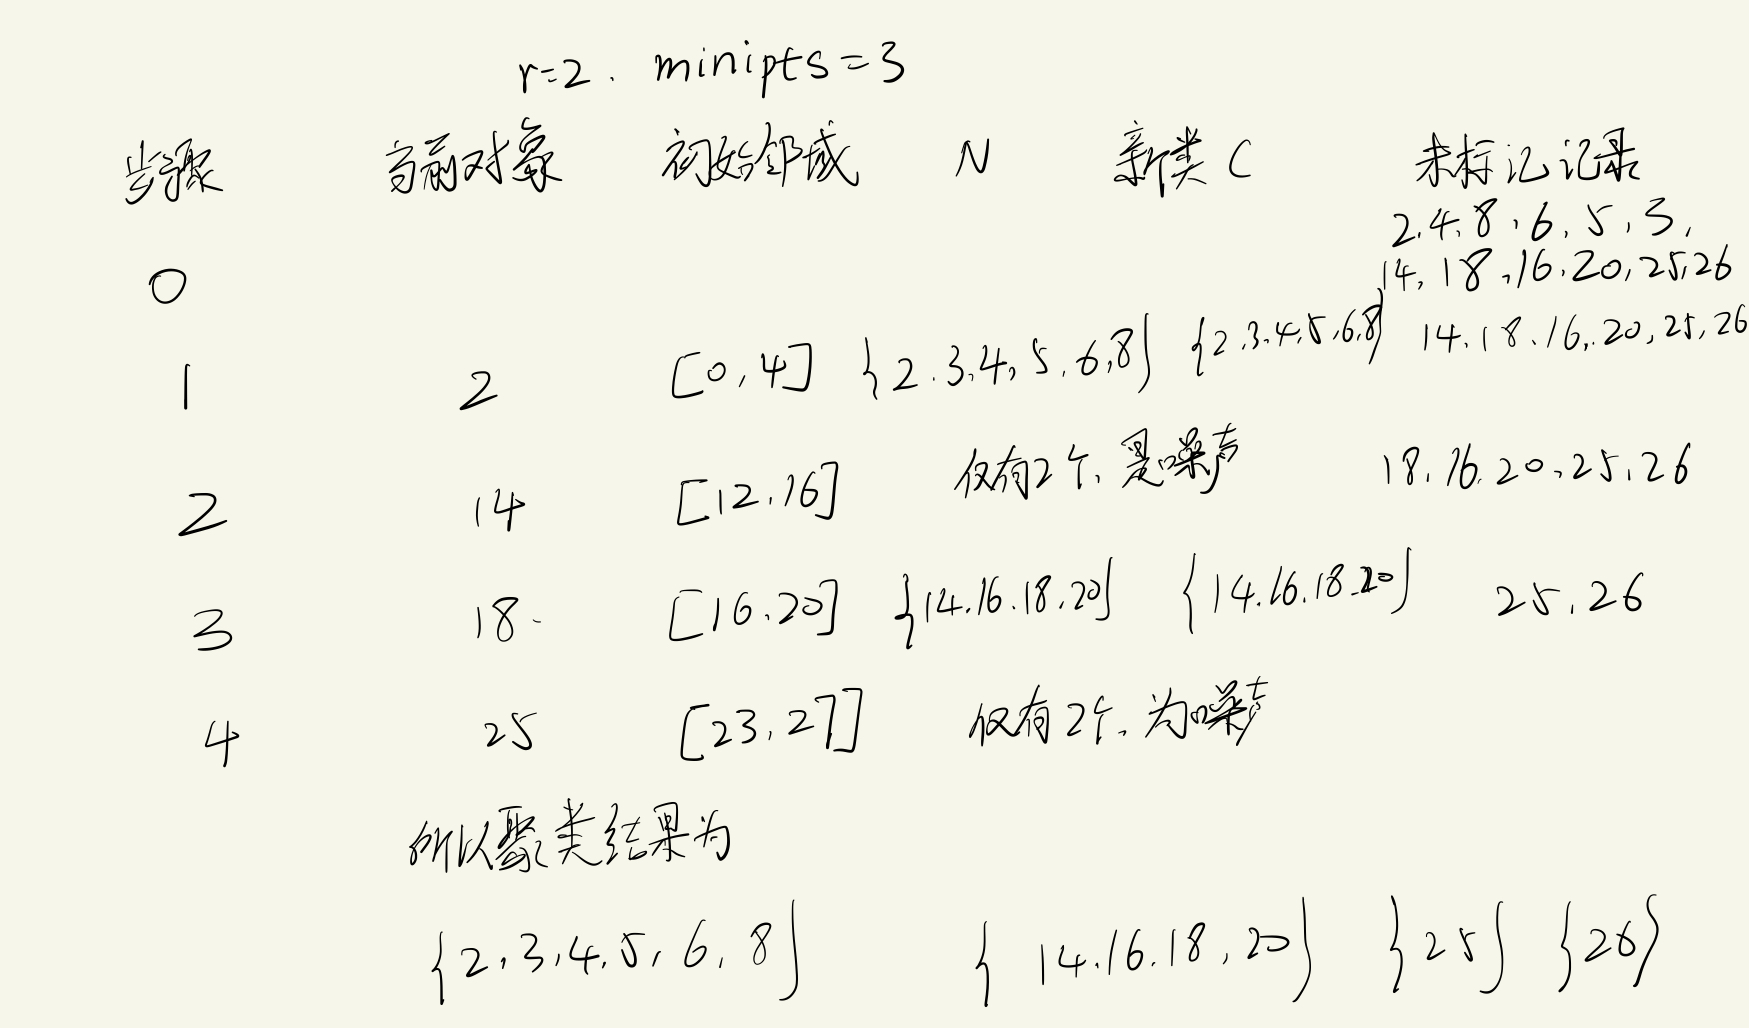 r=2. minipts=3
步骤 当前对象 初始邻域 N 新类C 未标记记录
0 2.4.8.6.5.3,
14,18,16.20,25,26
1 2 [0,4] {2.3.4,5.6,8} {2.3.4.5.6,8} 14.18.16.20,25,26
2 14 [12.16] 仅有2个,是噪声 18.16.20,25.26
3 18. [16.20] {14.16.18.20} {14.16.18.20} 25.26
4 25 [23,27] 仅有2个,为噪声
所以聚类结果为
{2,3,4,5,6,8} {14.16.18,20} {25} {26}